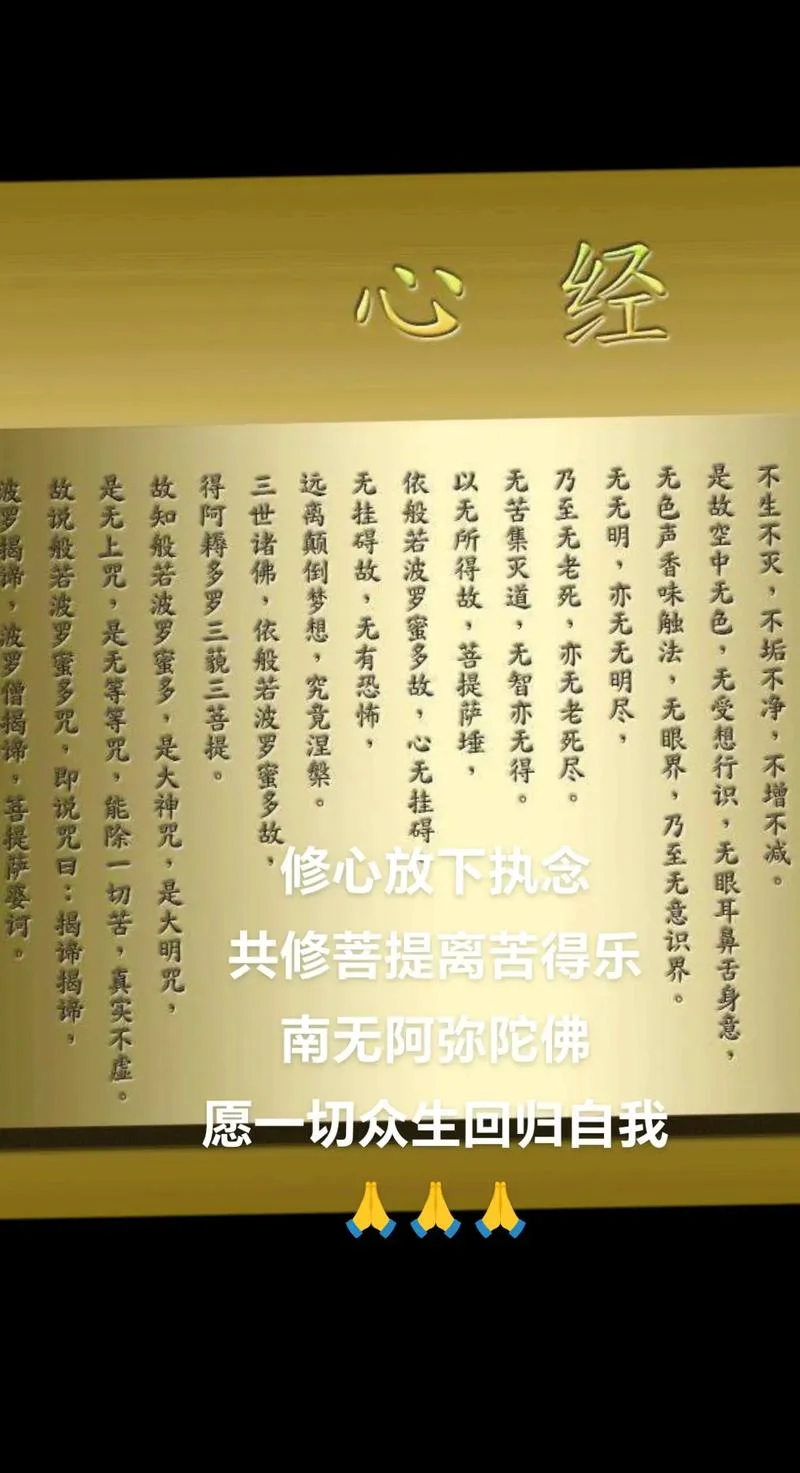 心 经
不生不灭，不垢不净，不增不减。
是故空中无色，无受想行识，无眼耳鼻舌身意，
无色声香味触法，无眼界，乃至无意识界。
无无明，亦无无明尽，
乃至无老死，亦无老死尽。
无苦集灭道，无智亦无得。
以无所得故，菩提萨埵，
依般若波罗蜜多故，心无挂碍
无挂碍故，无有恐怖，
远离颠倒梦想，究竟涅槃。
三世诸佛，依般若波罗蜜多故，
得阿耨多罗三藐三菩提。
故知般若波罗蜜多，是大神咒，是大明咒，
是无上咒，是无等等咒，能除一切苦，真实不虚。
故说般若波罗蜜多咒，即说咒曰：揭谛揭谛，
波罗揭谛，波罗僧揭谛，菩提萨婆诃。
修心放下执念
共修菩提离苦得乐
南无阿弥陀佛
愿一切众生回归自我
🙏🙏🙏